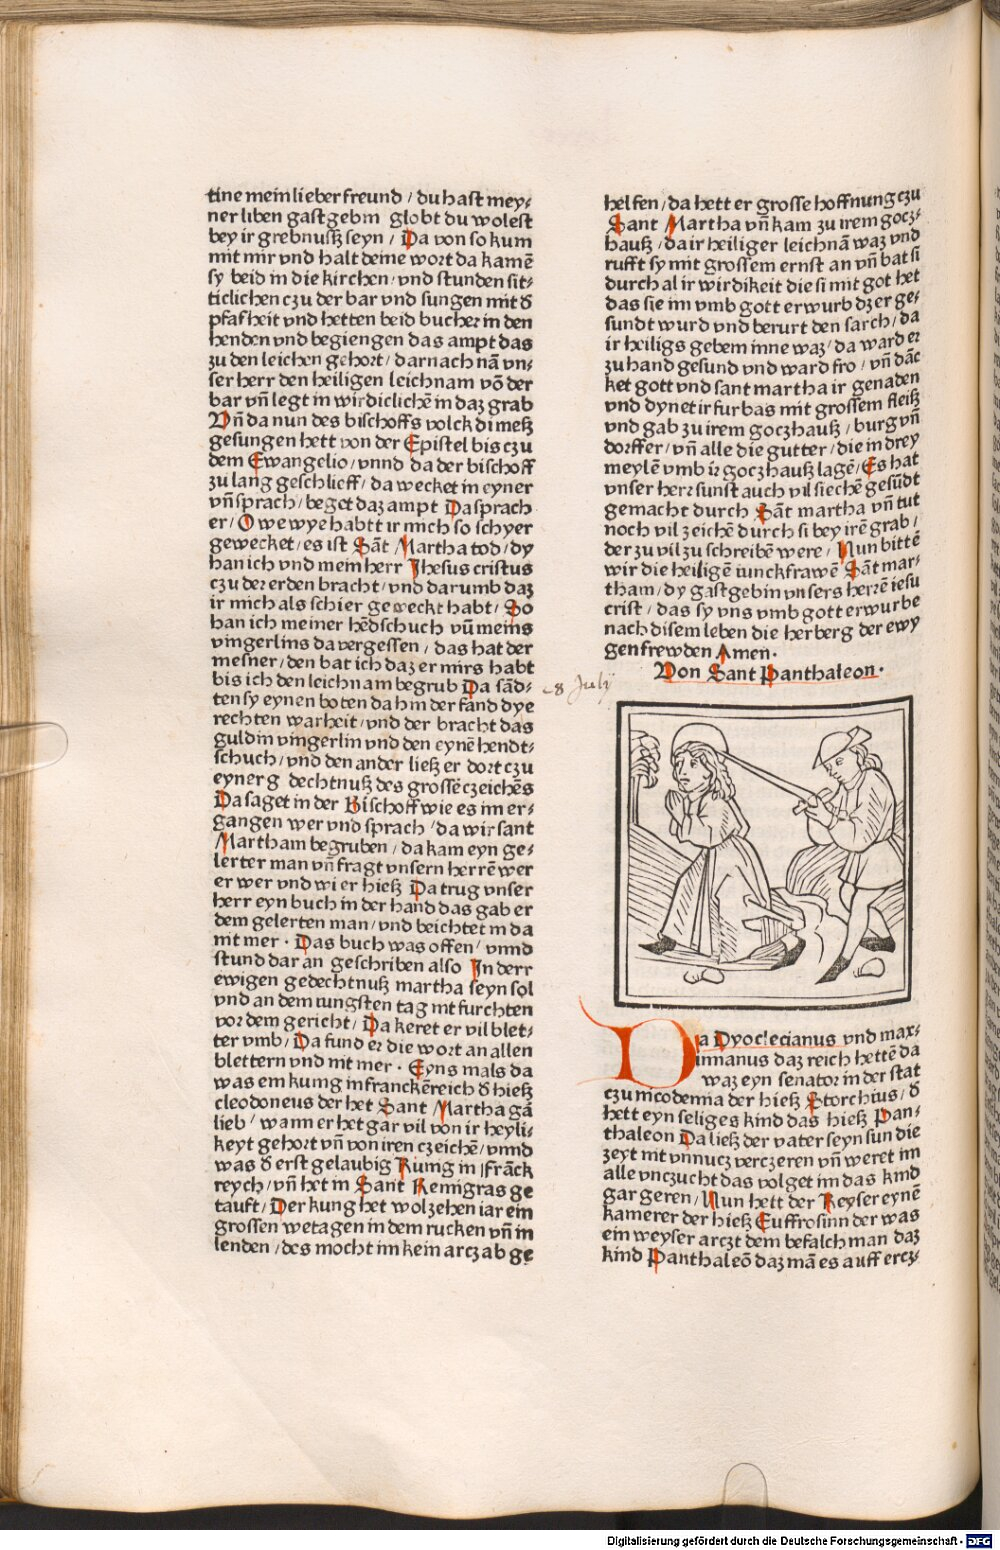 tine mein lieber freund / du hast mey⸗
ner liben gastgebin globt du wolest
bey ir grebnusz seyn / Da von so kum
mit mir vnd halt deine wort da kamē
sy beid in die kirchen / vnd stunden sit⸗
ticlichen czu der bar vnd sungen mit d̕
pfafheit vnd hetten beid bucher in den
henden vnd begiengen das ampt das
zu den leichen gehort / darnach nā vn⸗
ser herr den heiligen leichnam vō der
bar vn̄ legt in wirdiclichē in daz grab
Vn̄ da nun des bischoffs volck di mesz
gesungen hett von der Epistel bis czu
dem Ewangelio / vnnd da der bischoff
zu lang geschlieff / da wecket in eyner
vn̄ sprach / beget daz ampt Da sprach
er / O we wye habtt ir mich so schyer
gewecket / es ist Sāt Martha tod / dy
han ich vnd mein herr Jhesus cristus
czu der erden bracht / vnd darumb daz
ir mich als schier geweckt habt / So
han ich meiner hēdschuch vn̄ meins
vingerlins da vergessen / das hat der
mesner / den bat ich daz er mirs habt
bis ich den leichnam begrub Da sād⸗
ten sy eynen boten dahin der fand dye
rechten warheit / vnd der bracht das
guldin vingerlin vnd den eynē hendt⸗
schuch / vnd den ander liesz er dort czu
eyner g dechtnusz des grossē czeichēs
Da saget in der Bischoff wie es im er⸗
gangen wer vnd sprach / da wir sant
Martham begruben / da kam eyn ge⸗
lerter man vn̄ fragt vnsern herrē wer
er wer vnd wi er hiesz Da trug vnser
herr eyn buch in der hand das gab er
dem gelerten man / vnd beichtet in da
nit mer · Das buch was offen / vnnd
stund dar an geschriben also In derr
ewigen gedechtnusz martha seyn sol
vnd an dem iungsten tag nit furchten
vor dem gericht / Da keret er vil blet⸗
ter vmb / Da fund er die wort an allen
blettern vnd nit mer · Eyns mals da
was ein kunig in franckēreich d̕ hiesz
cleodoneus der het Sant Martha gā
lieb / wann er het gar vil von ir heyli⸗
keyt gehort vn̄ von iren czeichē / vnnd
was d̕ erst gelaubig Kunig in Frāck
reych / vn̄ het in Sant Remigras ge
tauft / Der kung het wol zehen iar ein
grossen wetagen in dem rucken vn̄ in
lenden / des mocht im kein arcz ab ge
helfen / da hett er grosse hoffnung czu
Sant Martha vn̄ kam zu irem gocz⸗
hausz / da ir heiliger leichnā waz vnd
rufft sy mit grossem ernst an vn̄ bat si
durch al ir wirdikeit die si mit got het
das sie im vmb gott erwurb dz er ge⸗
sundt wurd vnd berurt den sarch / da
ir heiligs gebein inne waz / da ward er
zu hand gesund vnd ward fro / vn̄ dāc
ket gott vnd sant martha ir genaden
vnd dynet ir furbas mit grossem fleisz
vnd gab zu irem goczhausz / burg vn̄
dorffer / vn̄ alle die gutter / die in drey
meylē vmb ir goczhausz lagē / Es hat
vnser herr sunst auch vil siechē gesūdt
gemacht durch Sāt martha vn̄ tut
noch vil zeichē durch si bey irē grab /
der zu vil zu schreibē were / Nun bittē
wir die heiligē iunckfrawē Sāt mar⸗
tham / dy gastgebin vnsers herrē iesu
crist / das sy vns vmb gott erwurbe
nach disem leben die herberg der ewy
gen frewden Amen ·
Von Sant Panthaleon ·
28 Julij
Da Dyoclecianus vnd max⸗
imianus daz reich hettē da
waz eyn senator in der stat
czu nicodemia der hiesz Storchius / d̕
hett eyn seliges kind das hiesz Pan⸗
thaleon Da liesz der vater seyn sun die
zeyt nit vnnucz verczeren vn̄ weret im
alle vnczucht das volget im das kind
gar geren / Nun hett der Keyser eynē
kamerer der hiesz Euffrosinn der was
ein weyser arczt dem befalch man daz
kind Panthaleō daz mā es auff ercz⸗
Digitalisierung gefördert durch die Deutsche Forschungsgemeinschaft · DFG